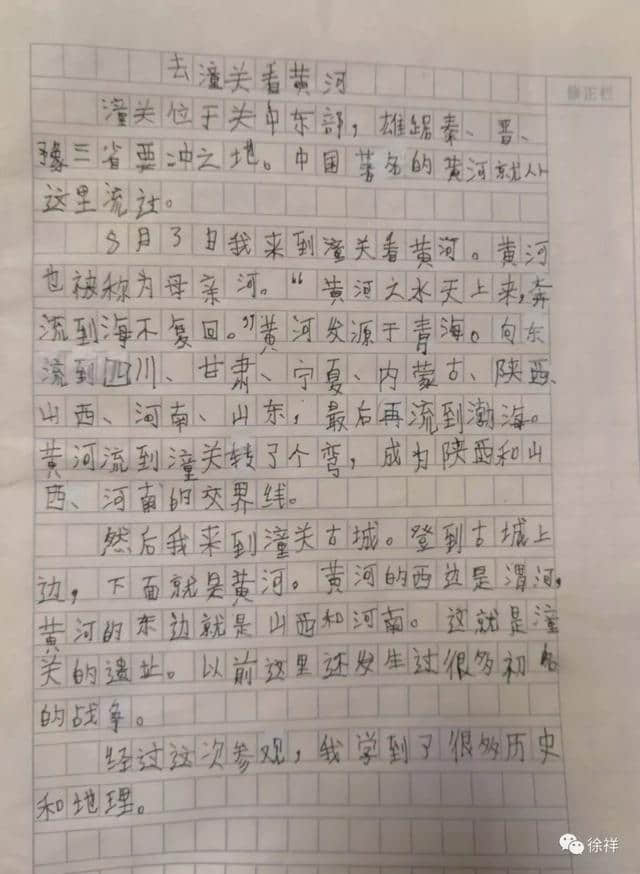 去潼关看黄河
修正栏
潼关位于关中东部，雄踞秦、晋、
豫三省要冲之地。中国著名的黄河就从
这里流过。
8月3日我来到潼关看黄河。黄河
也被称为母亲河。“黄河之水天上来，奔
流到海不复回。”黄河发源于青海。向东
流到四川、甘肃、宁夏、内蒙古、陕西、
山西、河南、山东，最后再流到渤海。
黄河流到潼关转了个弯，成为陕西和山
西、河南的交界线。
然后我来到潼关古城。登到古城上
边，下面就是黄河。黄河的西边是渭河，
黄河的东边就是山西和河南。这就是潼
关的遗址。以前这里还发生过很多初名
的战争。
经过这次参观，我学到了很多历史
和地理。
徐祥